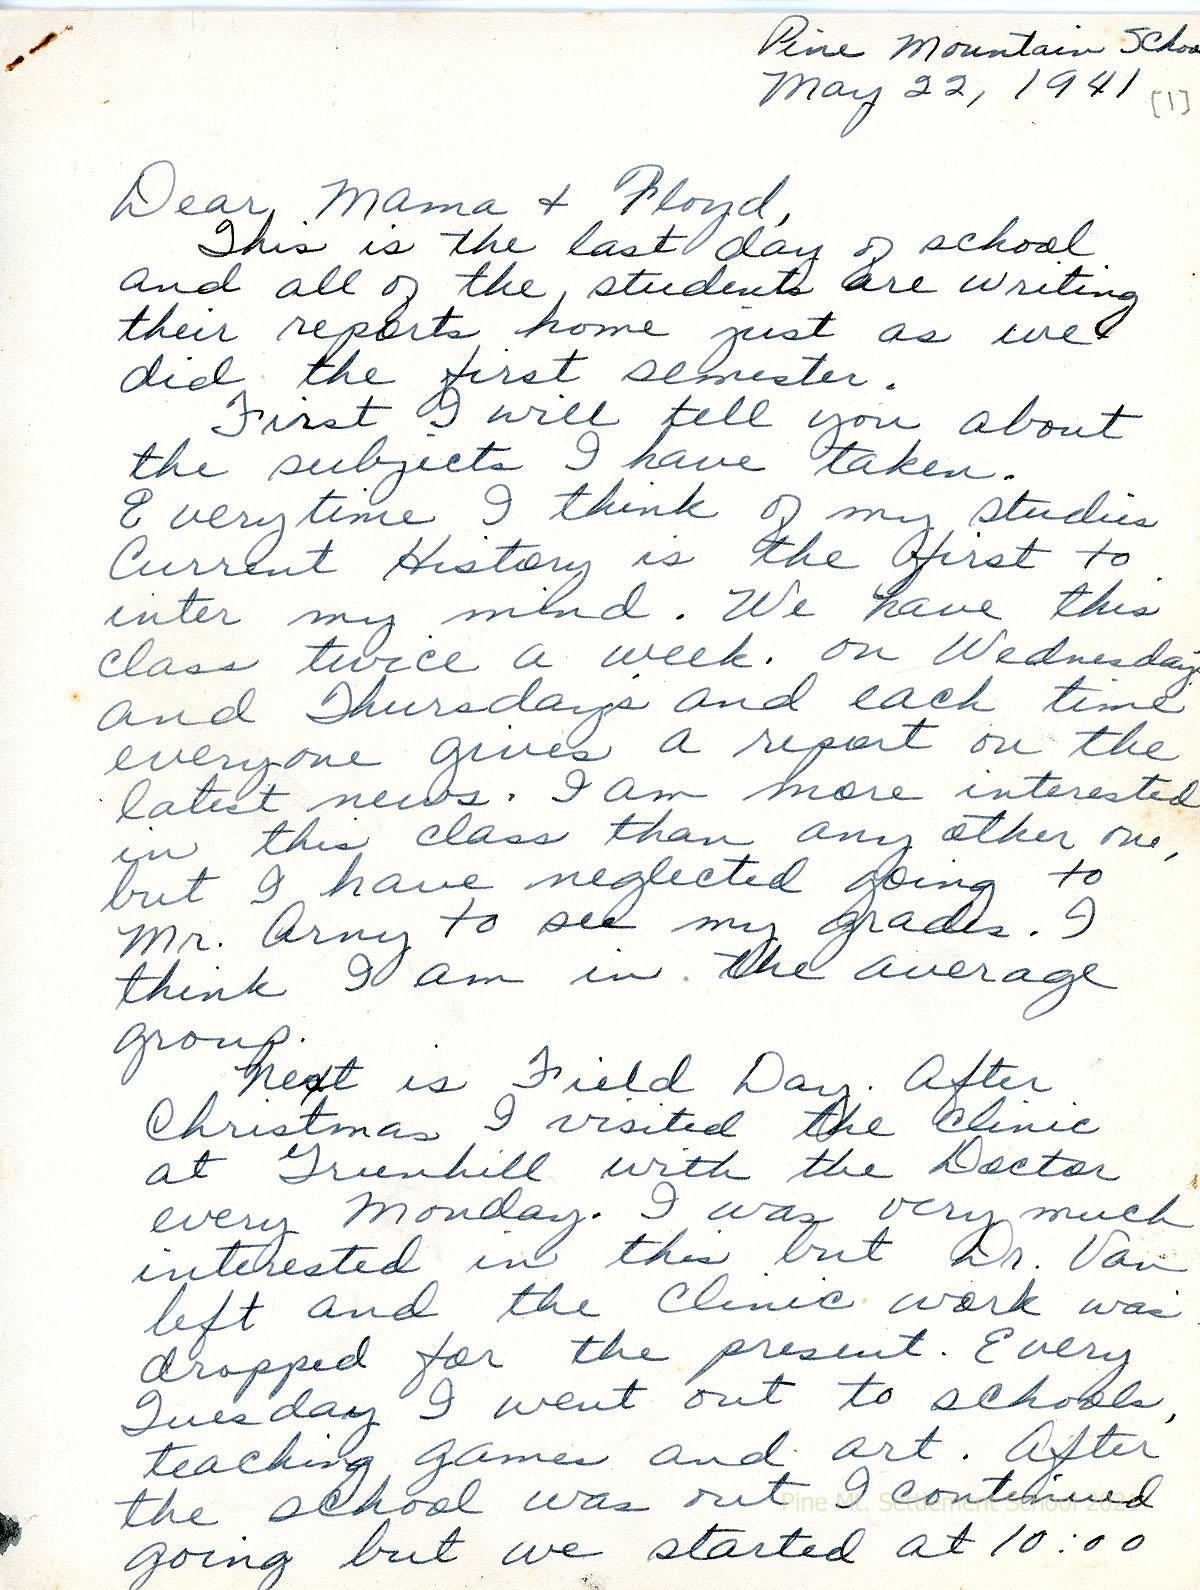 Pine Mountain Schoo
May 22, 1941
[1]
Dear Mama & Floyd,
This is the last day of school
and all of the students are writing
their reports home just as we
did the first semester.
First I will tell you about
the subjects I have taken.
Everytime I think of my studies
Current History is the first to
inter my mind. We have this
class twice a week. on Wednesday
and Thursday's and each time
everyone gives a report on the
latest news. I am more interested
in this class than any other one,
but I have neglected going to
Mr. Arny to see my grades. I
think I am in the average
group.
Next is Field Day. After
Christmas I visited the Clinic
at Greenhill with the Doctor
every Monday. I was very much
interested in this but Dr. Van
left and the Clinic work was
dropped for the present. Every
Tuesday I went out to schools,
teaching games and art. After
the school was out I continued
Pine Mt. Settlement School 202
going but we started at 10:00